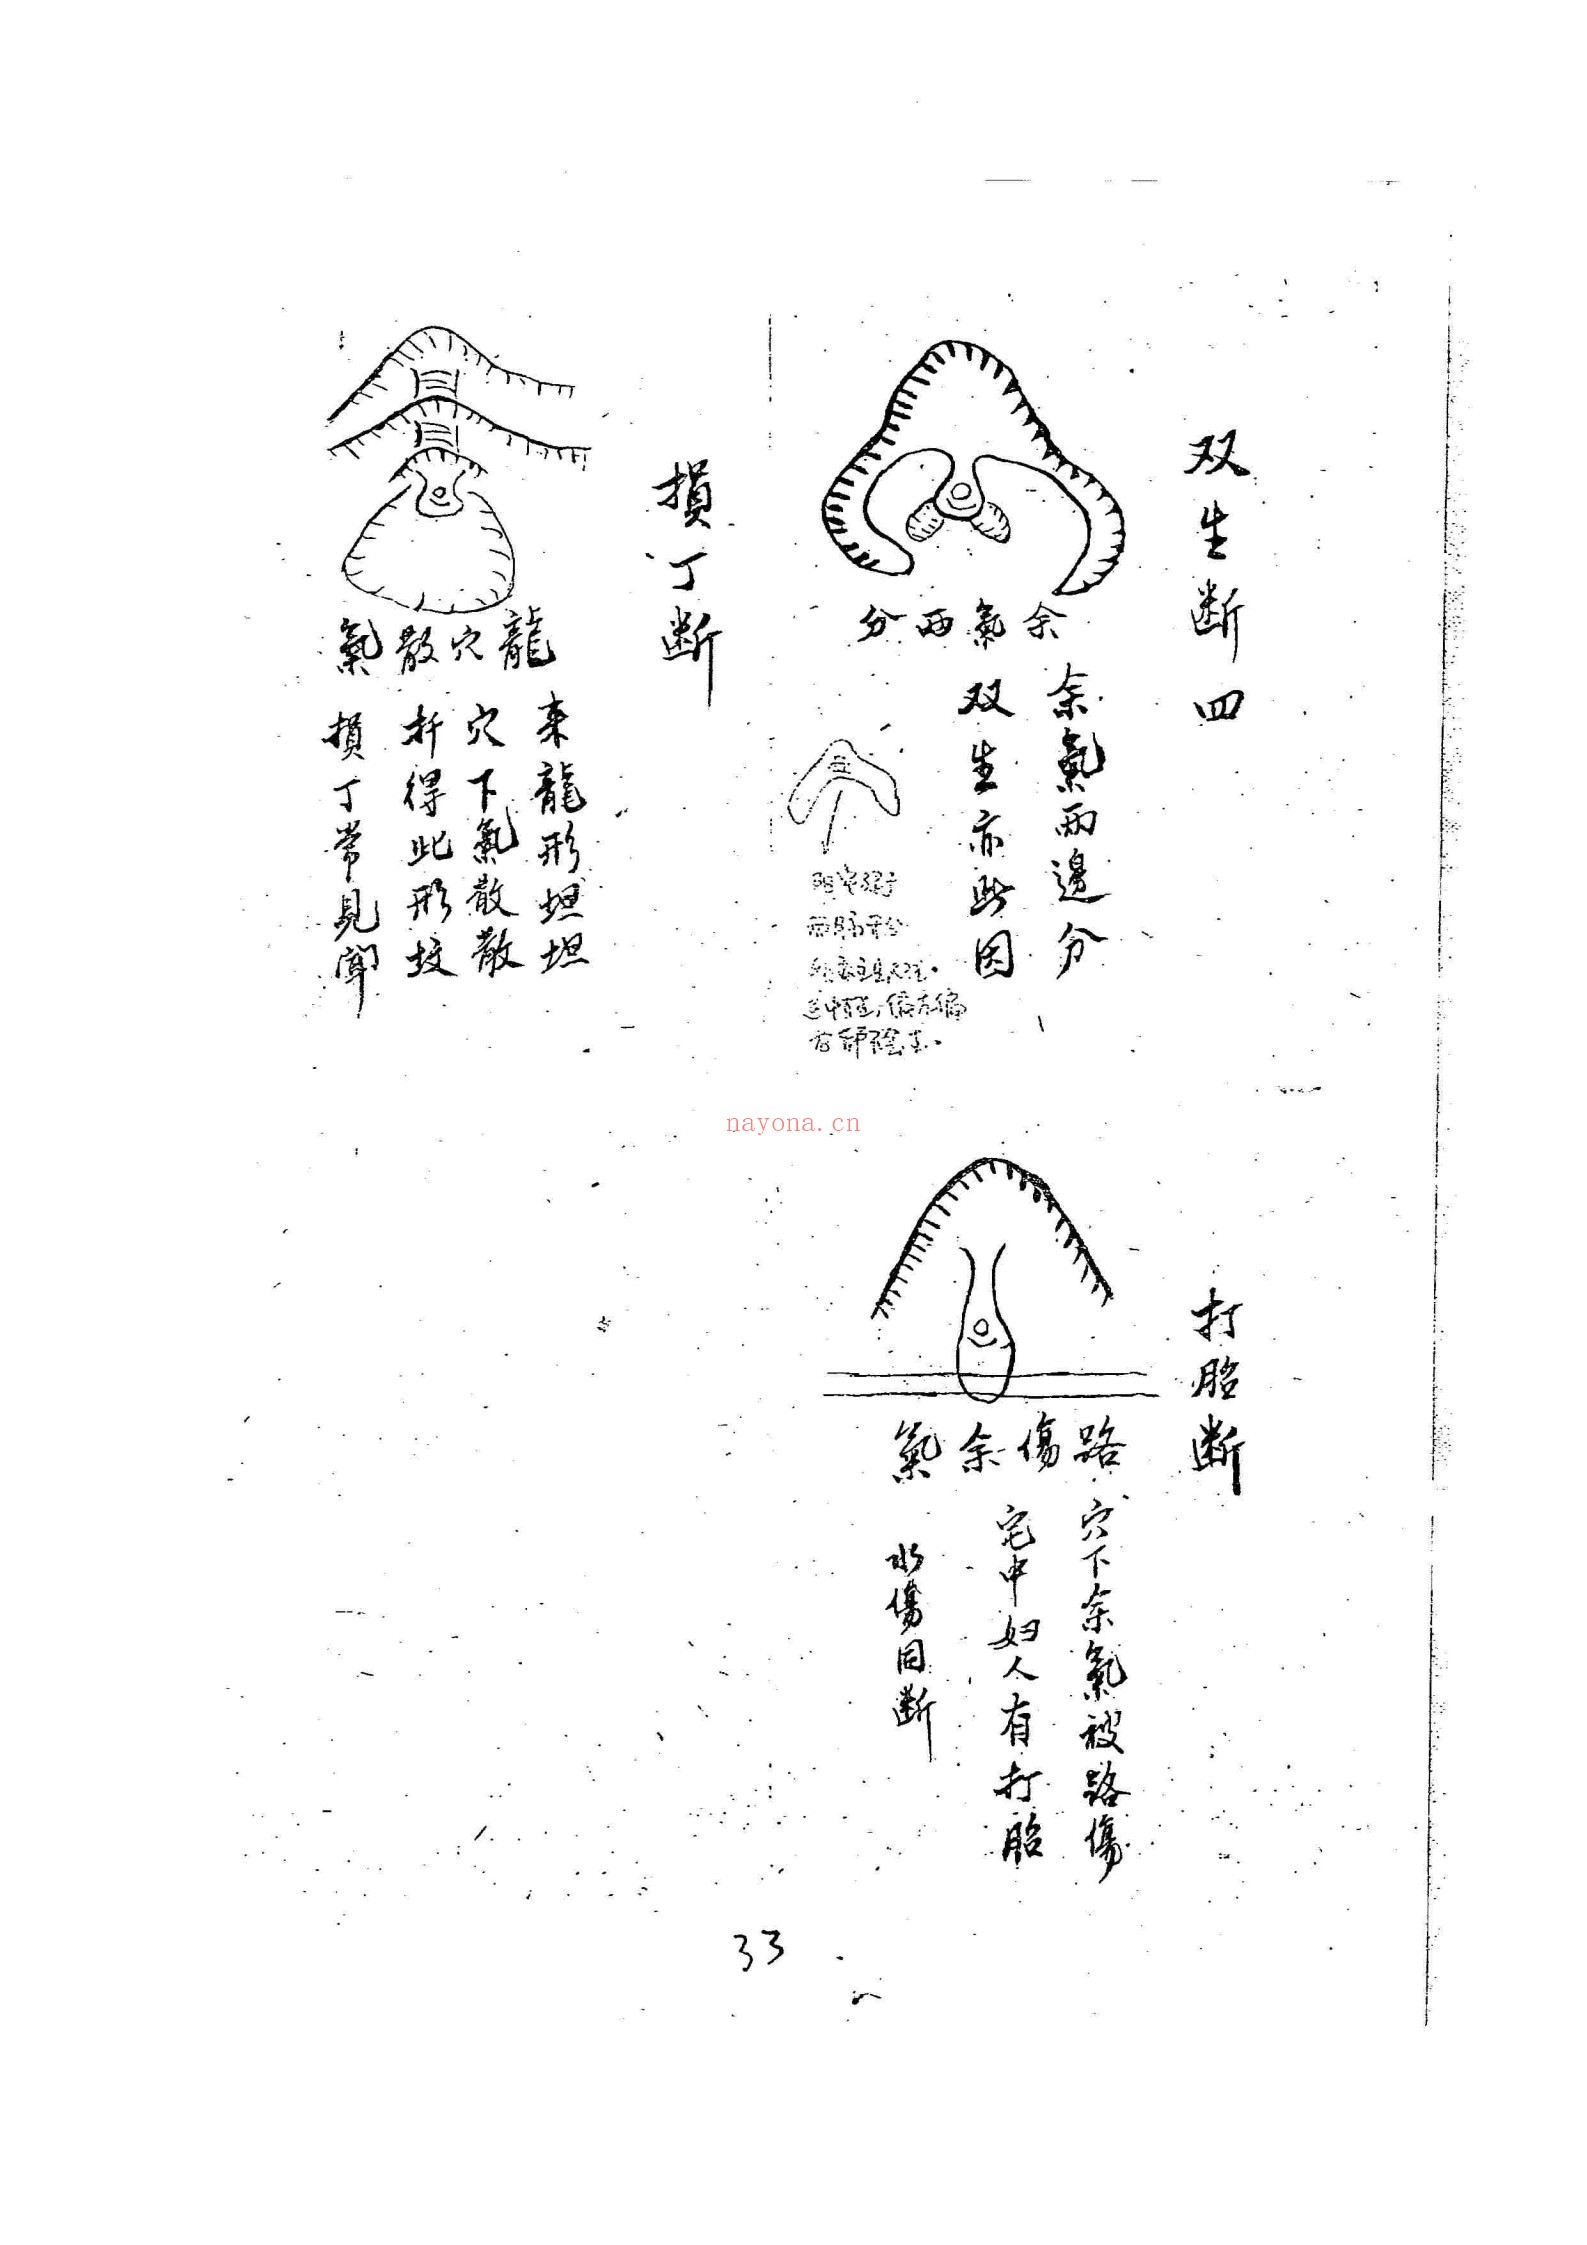 双生断四
余氣两分
余氣两邊分
双生亦此因
損丁断
龍穴散氣
来龍形坦坦
穴下氣散散
扦得此形坟
損丁常見聞
nayona.cn
打胎断
路傷余氣
穴下余氣被路傷
宅中妇人有打胎
水傷同断
33